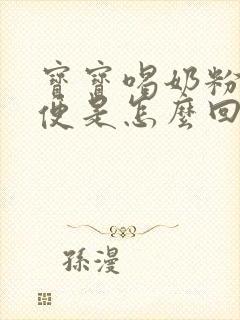 寶寶喝奶粉
便是怎麼回
孫漫